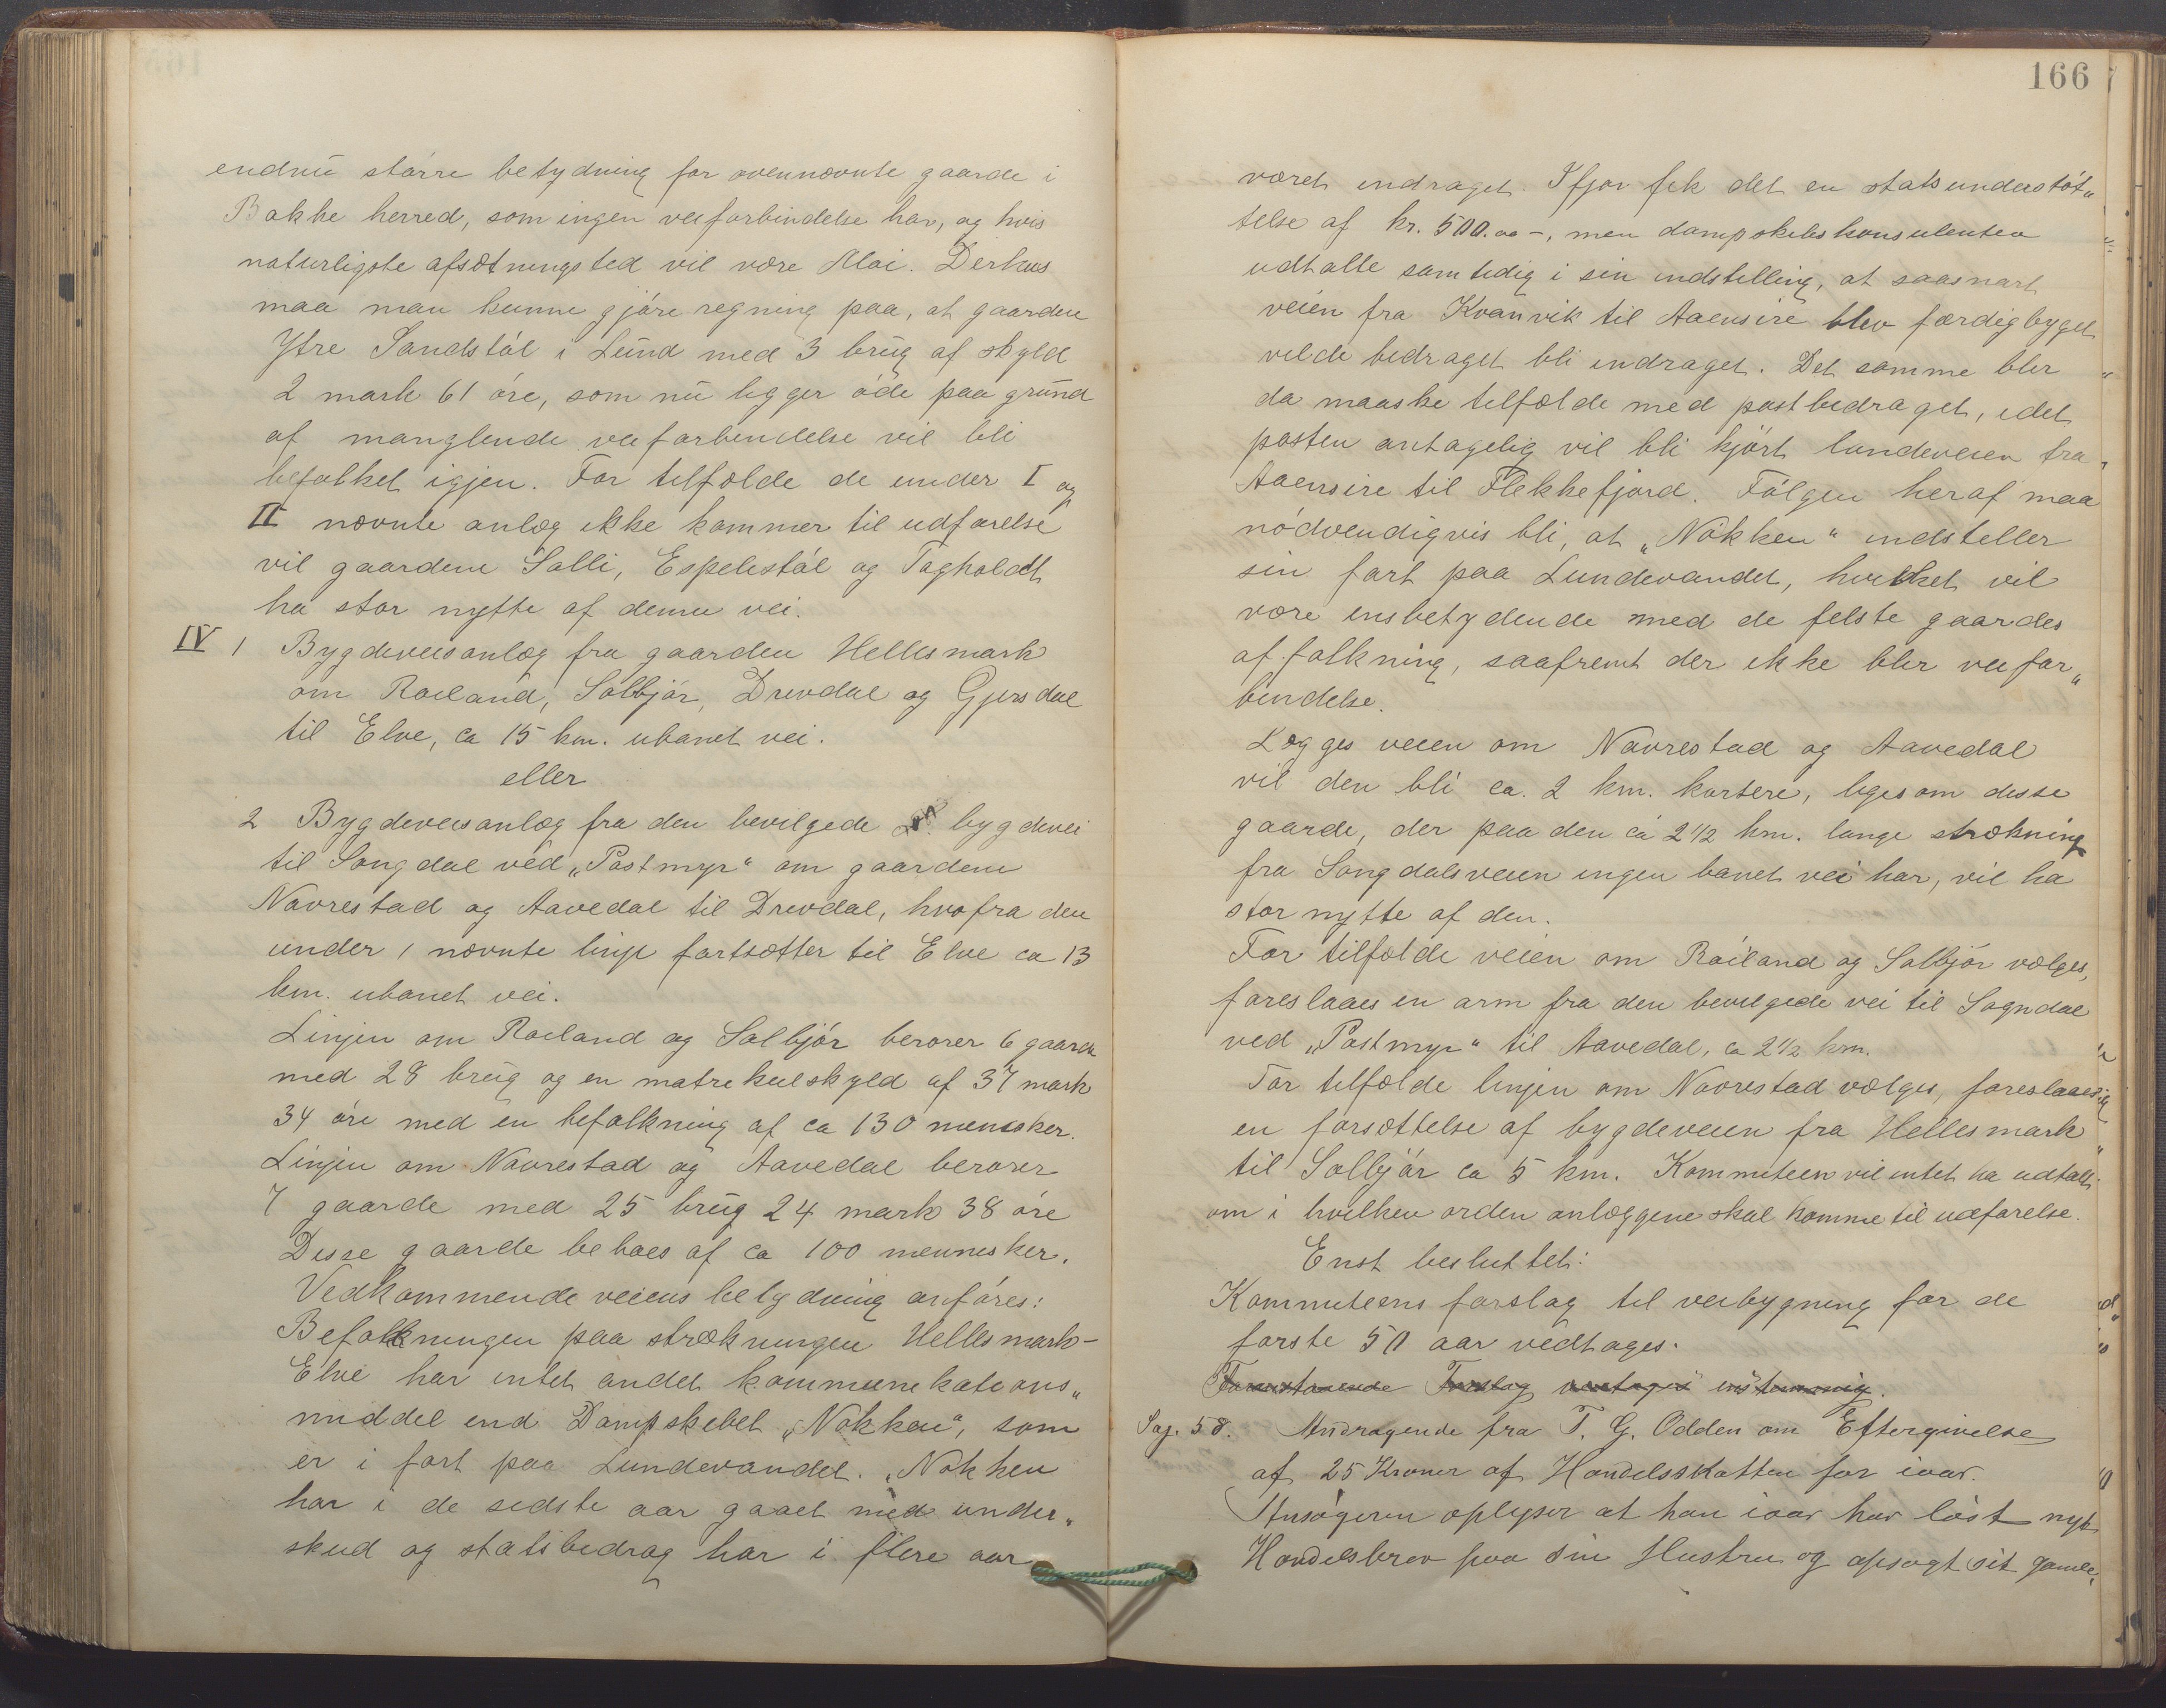 endnu större betydning for ovennævnte gaarde i
Bakke herred, som ingen veiforbindelse har, og hvis
naturligste afsætningsted vil være Moi. Derhus
maa man kunne gjöre regning paa, at gaarden
Ytre Sandstöl i Lund med 3 brug af skyld
2 mark 61 öre, som nu ligger öde paa grund
af manglende veiforbindelse vil bli
befolket igjen. For tilfælde de under I og
II nævnte anlæg ikke kommer til udførelse
vil gaardene Salli, Espelistöl og Tagholdt
ha stor nytte af denne vei.
IV 1 Bygdeveisanlæg fra gaarden Hellesmark
om Röiland, Solbjör, Drivdal og Gjersdal
til Elve, ca 15 km. ubanet vei.
eller
2 Bygdeveisanlæg fra den bevilgede bygdevei
til Songdal ved „Postmyr“ om gaardene
Navrestad og Aavedal til Drevdal, hvofra den
under 1 nævnte linje fortsætter til Elve ca 13
km. ubanet vei.
Linjen om Roiland og Salbjör berører 6 gaarde
med 28 brug og en matrikulskyld af 37 mark
34 öre med en befolkning af ca 130 mennsker.
Linjen om Navrestad og Aavedal berører
7 gaarde med 25 brug 24 mark 38 öre
Disse gaarde beboes af ca 100 mennesker.
Vedkommende veiens betydning anföres:
Befolkningen paa strækningen Hellesmark-
Elve har intet andet kommunikations„
middel end Dampskibet „Nøkken“, som
er i fart paa Lundevandet. „Nøkken
har i de sidste aar gaaet med under„
skud og statsbidrag har i flere aar
166
været indraget. Ifjor fik det en statsunderstöt„
telse af kr. 500.00 -, men dampskibskonsulenten
udtalte samtidig i sin indstilling, at saasnart
veien fra Kvanvik til Aaensire blev færdigbyget
vilde bidraget bli indraget. Det samme blir
da maaske tilfælde med postbidraget, idet
posten antagelig vil bli kjört landeveien fra
Aaensire til Flekkefjord. Fölgen heraf maa
nödvendigvis bli, at „Nökken“ indstiller
sin fart paa Lundevandet, hvilket vil
være ensbetydende med de felste gaardes
affolkning, saafremt der ikke blir veifor„
bindelse.
Lægges veien om Navrestad og Aavedal
vil den bli ca. 2 km. kortere, ligesom disse
gaarde, der paa den ca 2 1/2 km. lange strækning
fra Songdalsveien ingen banet vei har, vil ha
stor nytte af den.
For tilfælde veien om Röiland og Salbjör vælges,
foreslaaes en arm fra den bevilgede vei til Sogndal
ved „Postmyr“ til Aavedal, ca 2 1/2 km.
For tilfælde linjen om Navrestad vælges, foreslaaes
en forsættelse af bygdeveien fra Hellesmark
til Solbjör ca 5 km. Kommiteen vil intet ha udtalt
om i hvilken orden anlæggene skal komme til udførelse.
Enst besluttet:
Kommiteens forslag til veibygning for de
første 50 aar vedtages.
Foranstaaende Forslag vedtages enstemmig.
Sag. 58. Andragende fra T. G. Odden om Eftergivelse
af 25 Kroner af Handelsskatten for iaar.
Ansögeren oplyser at han iaar har löst nyt
Handelsbrev paa sin Hustru og opsagt sit gamle,